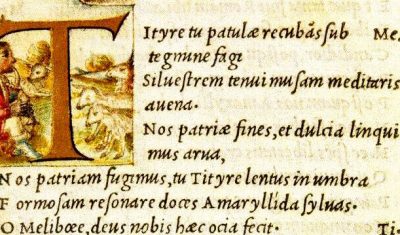 Tityre tu patulæ recubãs sub Me
tegmine fagi
Siluestrem tenui musam meditaris
auena.
Nos patriæ fines, et dulcia linqui
mus arua,
Nos patriam fugimus, tu Tityre lentus in umbra
Formosam resonare doces Amaryllida syluas.
O Meliboee, deus nobis hæc ocia fecit. Ti.